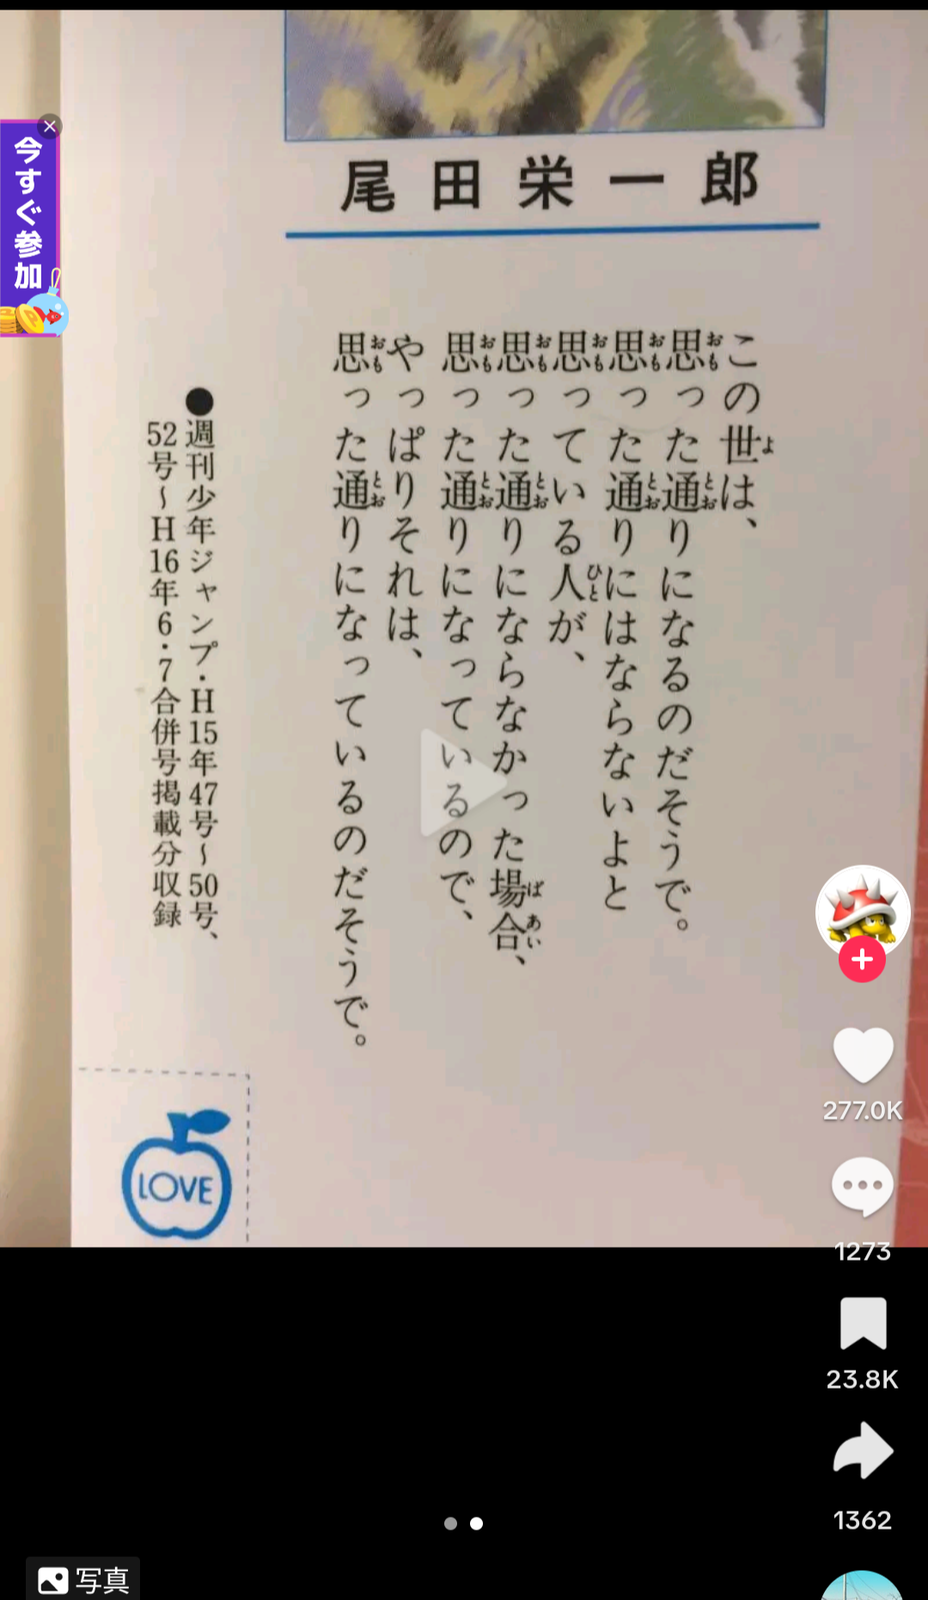 今すぐ参加
尾田栄一郎
この世は、
思った通りになるのだそうで。
思った通りにはならないよと
思っている人が、
思った通りにならなかった場合、
思った通りになっているので、
やっぱりそれは、
思った通りになっているのだそうで。
●週刊少年ジャンプ・H15年47号~50号、
52号~H16年6・7合併号掲載分収録
LOVE
277.0K
1273
23.8K
1362
写真